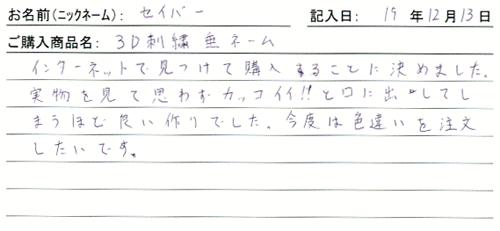 お名前(ニックネーム): セイバー 記入日: 19 年 12 月 13 日
ご購入商品名: 3D刺繍 垂ネーム
インターネットで見つけて購入することに決めました。
実物を見て思わずカッコイイ!!と口に出してし
まうほど良い作りでした。今度は色違いを注文
したいです。